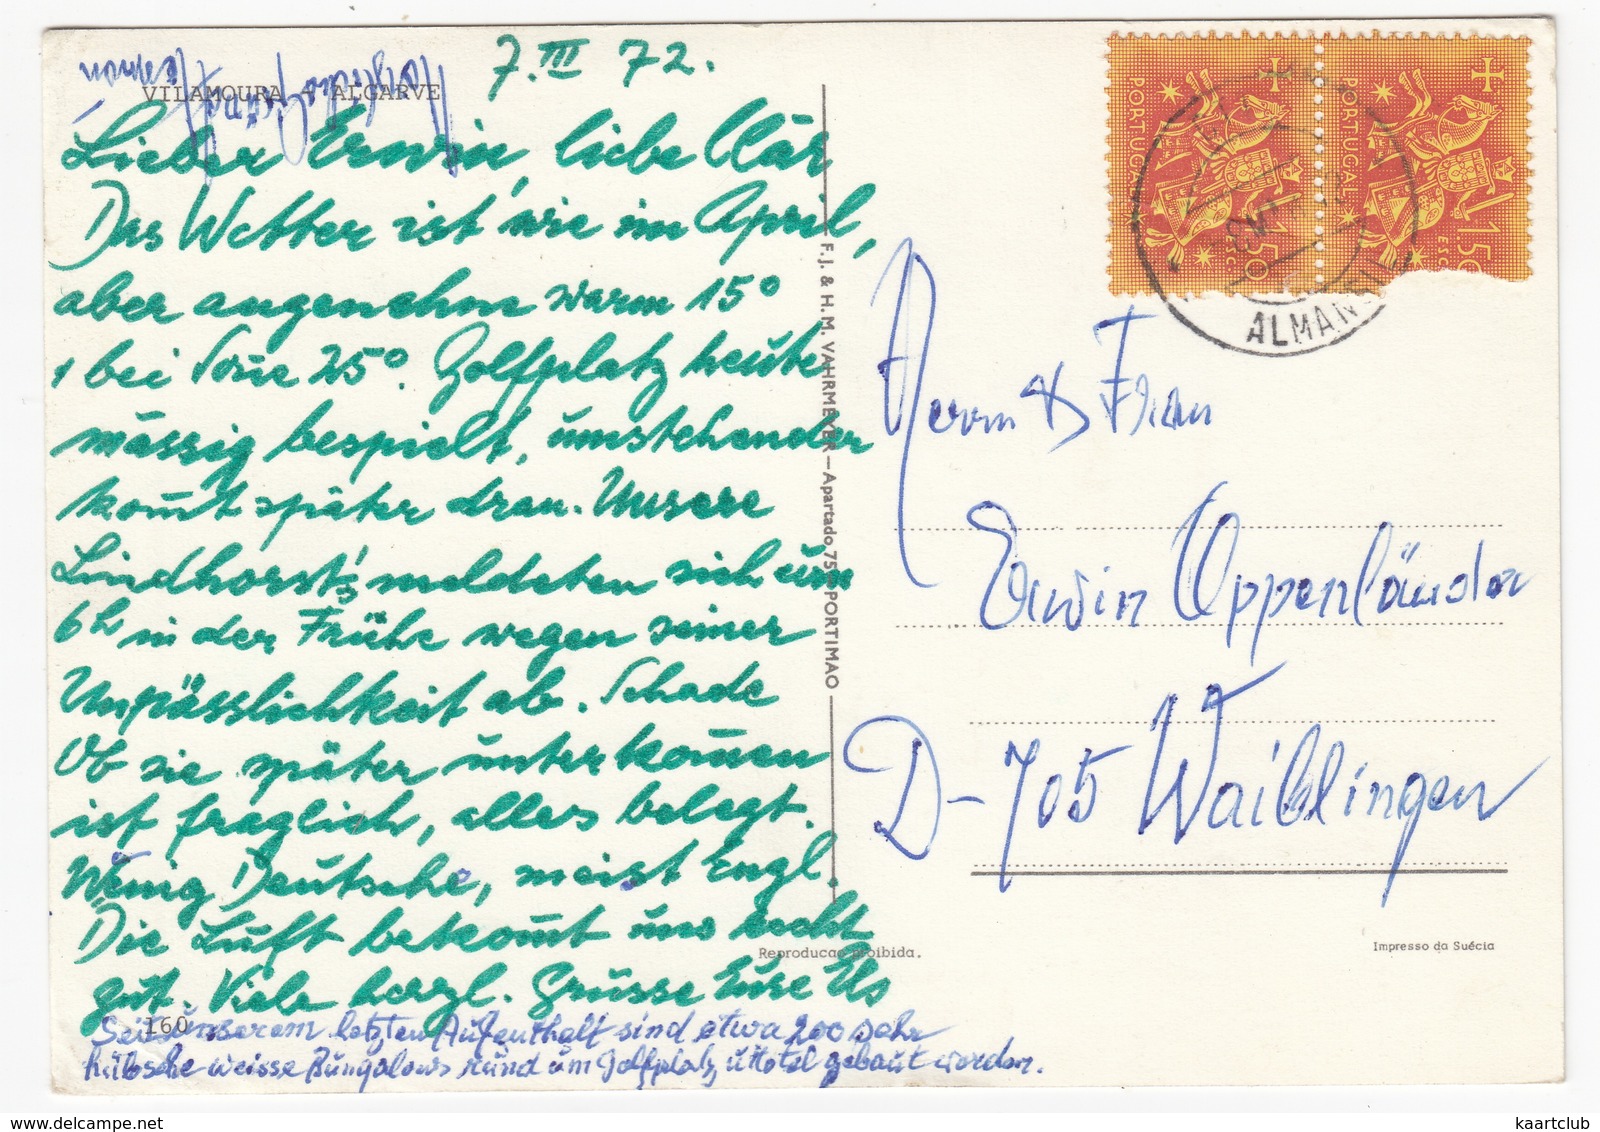 7. III 72.
VILAMOURA - ALGARVE
Lieber Erwin, liebe Clär
Das Wetter ist wie im April,
aber angenehm warm 15°
, bei Soñe 25°. Golfplatz heute
mässig bespielt, umstehender
kom̄t später dran. Unsere
Lindhorst's meldeten sich um
6h in der Frühe wegen seiner
Unpässlichkeit ab. Schade
Ob sie später unterkom̄en
ist fraglich, alles belegt.
Wenig Deutsche, meist Engl.
Die Luft bekom̄t uns recht
gut. Viele herzl. Grüsse Eure Els
160
Seit unserem letzten Aufenthalt sind etwa 200 sehr
hübsche weisse Bungalows rund um Golfplatz u Hotel gebaut worden.
F.J. & H.M. VAHRMEYER — Apartado 75 — PORTIMAO
Reproducao proibida.
PORTUGAL
1$50
ESC.
PORTUGAL
1$50
ESC.
ALMANSIL
Herrn & Frau
Erwin Oppenländer
D-705 Waiblingen
Impresso da Suécia
kaartclub